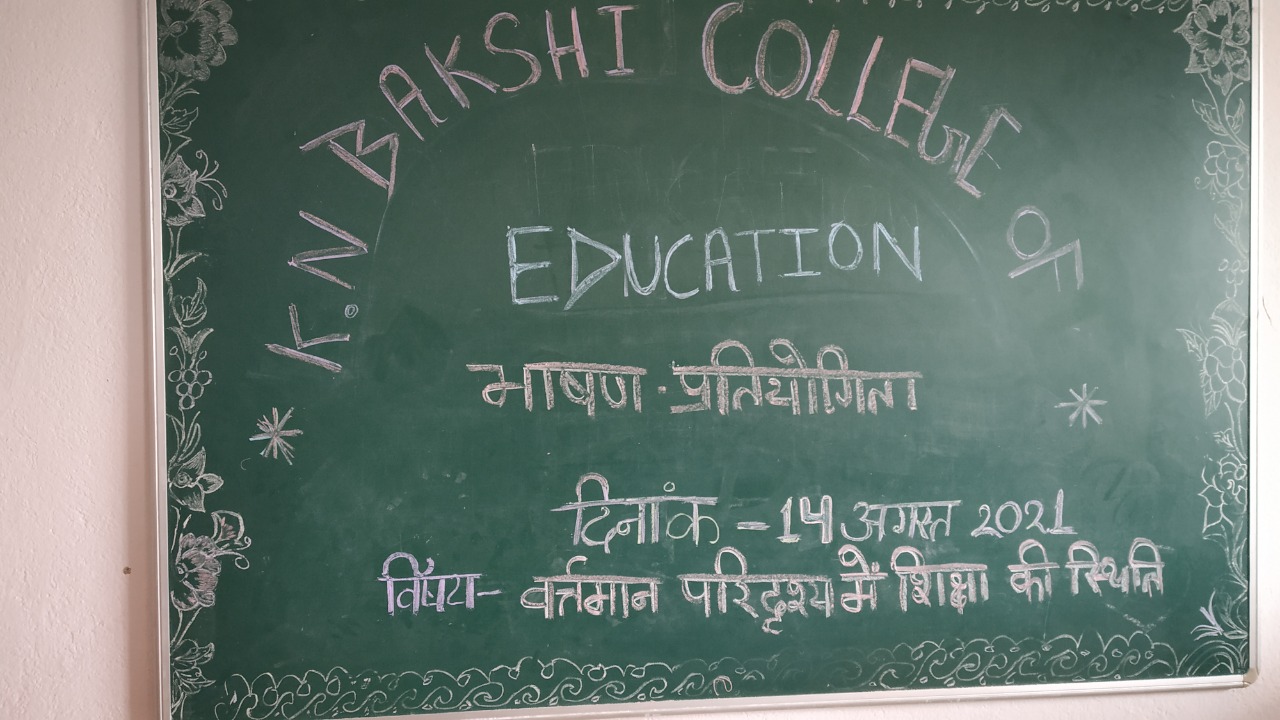 K.N BAKSHI COLLEGE OF
EDUCATION
भाषण - प्रतियोगिता
दिनांक - 14 अगस्त 2021
विषय - वर्त्तमान परिदृश्य में शिक्षा की स्थिति